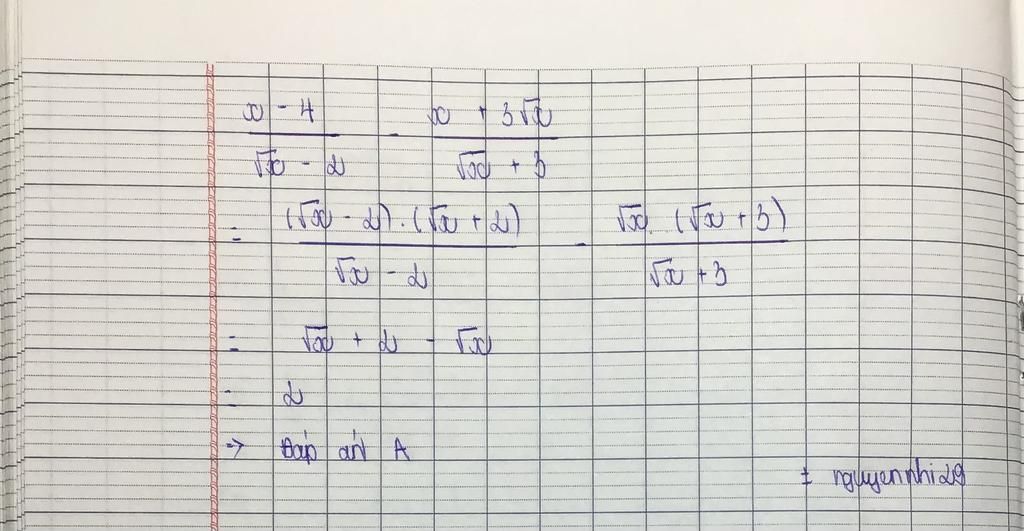 x - 4 / √x - 2 - x + 3√x / √x + 3
= (√x - 2).(√x + 2) / √x - 2 - √x. (√x + 3) / √x + 3
= √x + 2 - √x
= 2
=> Đáp án A
± nguyennhi29